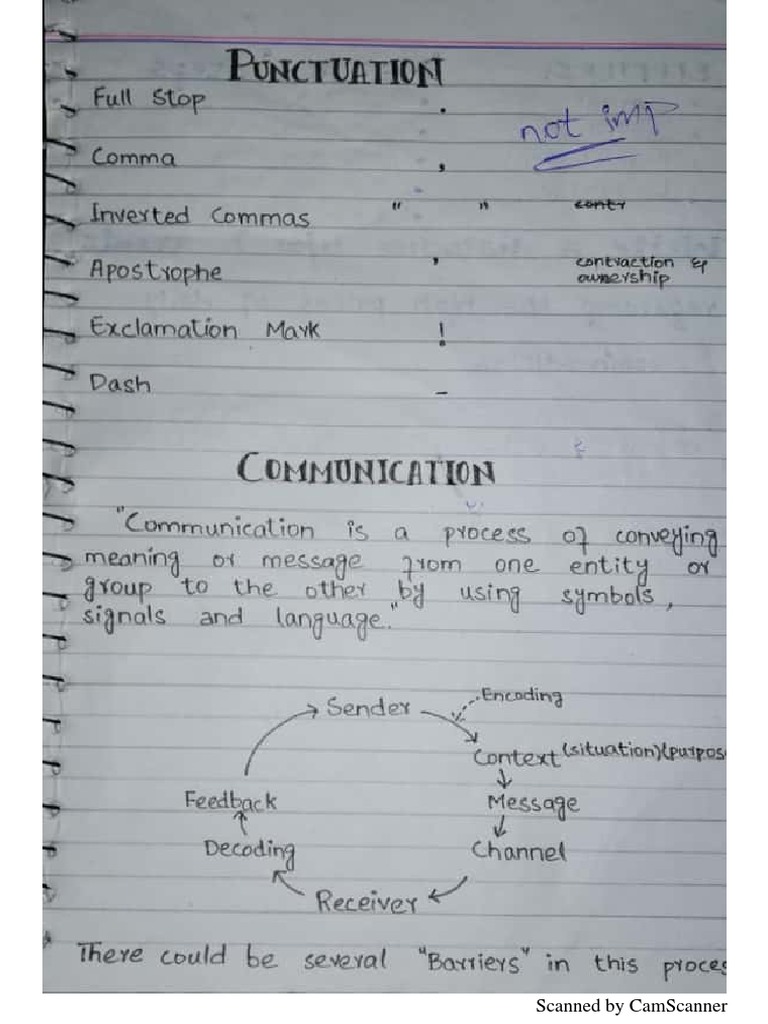 PUNCTUATION
Full Stop .
not imp
Comma ,
Inverted Commas " " contr
Apostrophe ' contraction & ownership
Exclamation Mark !
Dash -
COMMUNICATION
"Communication is a process of conveying
meaning or message from one entity or
group to the other by using symbols,
signals and language."
Sender
Encoding
Context (situation)(purpose
Message
Channel
Receiver
Decoding
Feedback
There could be several "Barriers" in this proces
Scanned by CamScanner